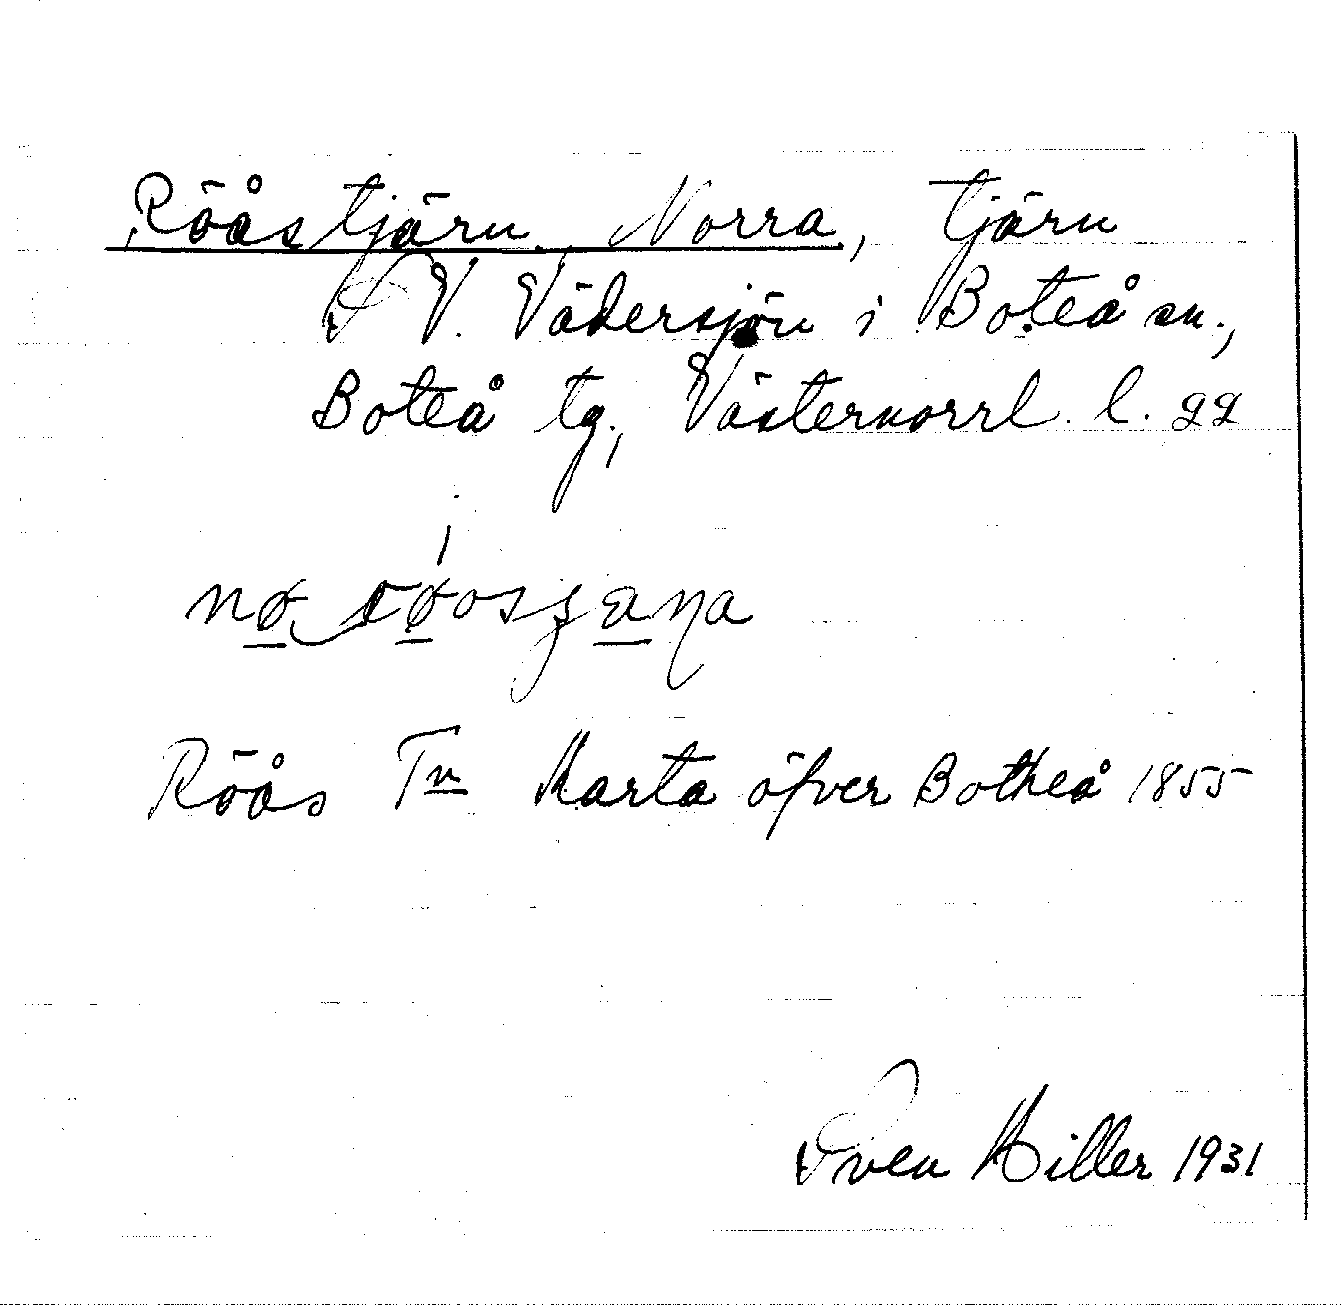 Röåstjärn, Norra, tjärn
S V. Vädersjön i Boteå sn.,
Boteå tg., Västernorrl. l. gg
Röås Tn Karta öfver Botheå 1855
Sven Hiller 1931